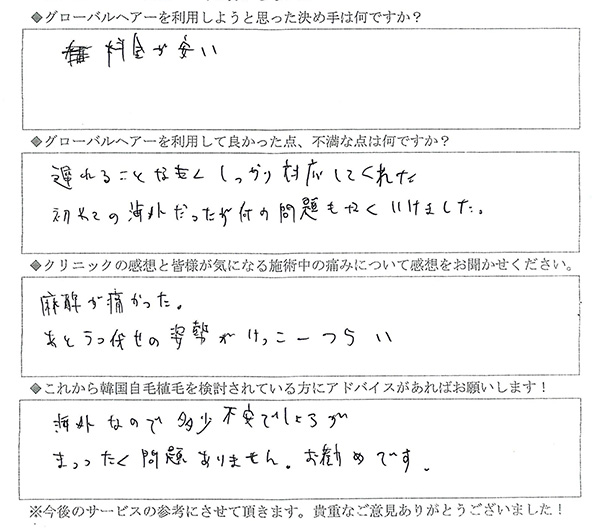 ◆グローバルヘアーを利用しようと思った決め手は何ですか？
料金が安い
◆グローバルヘアーを利用して良かった点、不満な点は何ですか？
遅れることなくしっかり対応してくれた
初めての海外だったが何の問題もなくいけました。
◆クリニックの感想と皆様が気になる施術中の痛みについて感想をお聞かせください。
麻酔が痛かった。
あとうつ伏せの姿勢がけっこーつらい
◆これから韓国自毛植毛を検討されている方にアドバイスがあればお願いします！
海外なので多少不安でしょうが
まったく問題ありません。お勧めです。
※今後のサービスの参考にさせて頂きます。貴重なご意見ありがとうございました！